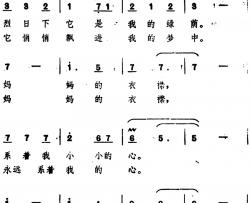 3 3 2 1 71 2 1 2
烈日下它是我的绿荫。
它悄悄飘进我的梦中。
7 — 1 · 2 1 5 7 7· 7
妈 妈 的 衣 襟，
妈 妈 的 衣 襟，
7 7 7 2 67 6 5· 5
系着我小小的心。
永远系着我的心。